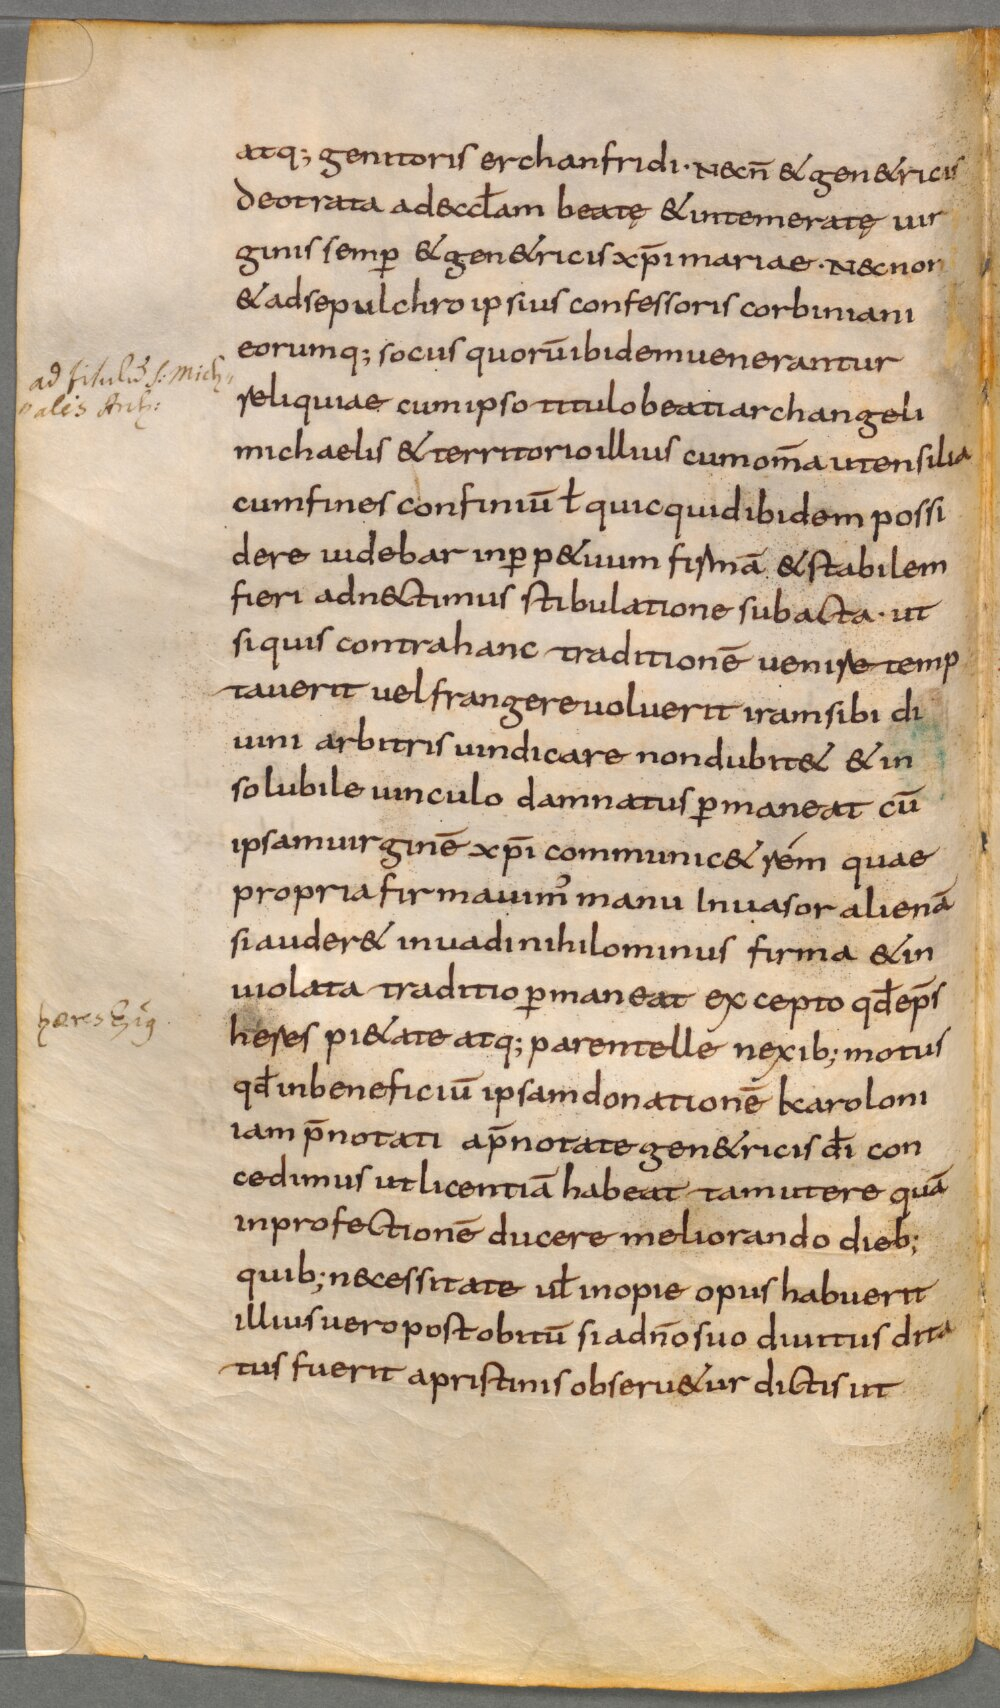 atq; genitoris erchanfridi · Necn̄ & gen&ricis
deotrata ad&ccłam beatę & intemeratę uir
ginis semꝑ & gen&ricis xp̄i mariae · Necnon
& ad sepulchro ipsius confessoris corbiniani
eorumq; socus quorū ibidem uenerantur
ad titulū S: Mich
reliquiae cum ipso titulo beati archangeli
alis Arch:
michaelis & territorio illius cum om̄a utensilia
cum fines confiniū ł quicquid ibidem possi
dere uidebar inꝑp&uum firmā & stabilem
fieri adnectimus stibulatione subacta · ut
siquis contra hanc traditionē uenire temp
tauerit uel frangere uoluerit iram sibi di
uini arbitris uindicare non dubit& & in
solubile uinculo damnatus ꝑmaneat cū
ipsam uirginē xp̄i communic& rém quae
propria firmauim᾽ manu Inuasor alienā
si auder& inuadi nihilominus firma & in
uiolata traditio ꝑmaneat excepto qđ ep̄s
heres pi&ate atq; parentelle nexib; motus
qđ in beneficiū ipsam donationē karoloni
iam p̄notati a p̄notate gen&ricis đi con
cedimus ut licentiā habeat tam utere quā
in profectionē ducere meliorando dieb;
quib; necessitate uł inopie opus habuerit
illius uero post obitū si adn̄o suo diuitus dita
tus fuerit a pristinis obseru&ur dictis ut